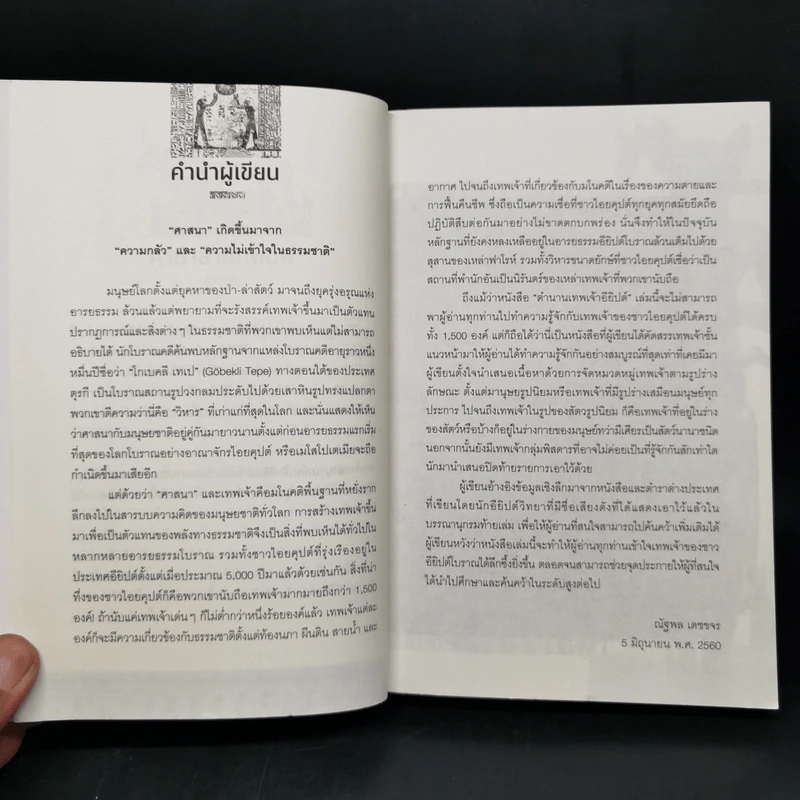 คำนำผู้เขียน
"ศาสนา" เกิดขึ้นมาจาก
"ความกลัว" และ "ความไม่เข้าใจในธรรมชาติ"
มนุษย์โลกตั้งแต่ยุคหาของป่า-ล่าสัตว์ มาจนถึงยุครุ่งอรุณแห่ง
อารยธรรม ล้วนแล้วแต่พยายามที่จะรังสรรค์เทพเจ้าขึ้นมาเป็นตัวแทน
ปรากฏการณ์และสิ่งต่างๆ ในธรรมชาติที่พวกเขาพบเห็นแต่ไม่สามารถ
อธิบายได้ นักโบราณคดีค้นพบหลักฐานจากแหล่งโบราณคดีอายุราวหนึ่ง
หมื่นปีชื่อว่า "โกเบคลี เทเป" (Göbekli Tepe) ทางตอนใต้ของประเทศ
ตุรกี เป็นโบราณสถานรูปวงกลมประดับไปด้วยเสาหินรูปทรงแปลกตา
พวกเขาตีความว่านี่คือ "วิหาร" ที่เก่าแก่ที่สุดในโลก และนั่นแสดงให้เห็น
ว่าศาสนากับมนุษยชาติอยู่คู่กันมายาวนานตั้งแต่ก่อนอารยธรรมแรกเริ่ม
ที่สุดของโลกโบราณอย่างอาณาจักรไอยคุปต์ หรือเมโสโปเตเมียจะถือ
กำเนิดขึ้นมาเสียอีก
แต่ด้วยว่า "ศาสนา" และเทพเจ้าคือมโนคติพื้นฐานที่หยั่งราก
ลึกลงไปในสารบบความคิดของมนุษยชาติทั่วโลก การสร้างเทพเจ้าขึ้น
มาเพื่อเป็นตัวแทนของพลังทางธรรมชาติจึงเป็นสิ่งที่พบเห็นได้ทั่วไปใน
หลากหลายอารยธรรมโบราณ รวมทั้งชาวไอยคุปต์ที่รุ่งเรืองอยู่ใน
ประเทศอียิปต์ตั้งแต่เมื่อประมาณ 5,000 ปีมาแล้วด้วยเช่นกัน สิ่งที่น่า
ทึ่งของชาวไอยคุปต์ก็คือพวกเขานับถือเทพเจ้ามากมายถึงกว่า 1,500
องค์! ถ้านับแค่เทพเจ้าเด่นๆ ก็ไม่ต่ำกว่าหนึ่งร้อยองค์แล้ว เทพเจ้าแต่ละ
องค์ก็จะมีความเกี่ยวข้องกับธรรมชาติตั้งแต่ท้องนภา ผืนดิน สายน้ำ และ
อากาศ ไปจนถึงเทพเจ้าที่เกี่ยวข้องกับมโนคติในเรื่องของความตายและ
การฟื้นคืนชีพ ซึ่งถือเป็นความเชื่อที่ชาวไอยคุปต์ทุกยุคทุกสมัยยึดถือ
ปฏิบัติสืบต่อกันมาอย่างไม่ขาดตกบกพร่อง นั่นจึงทำให้ในปัจจุบัน
หลักฐานที่ยังคงหลงเหลืออยู่ในอารยธรรมอียิปต์โบราณล้วนเต็มไปด้วย
สุสานของเหล่าฟาโรห์ รวมทั้งวิหารขนาดยักษ์ที่ชาวไอยคุปต์เชื่อว่าเป็น
สถานที่พำนักอันเป็นนิรันดร์ของเหล่าเทพเจ้าที่พวกเขานับถือ
ถึงแม้ว่าหนังสือ "ตำนานเทพเจ้าอียิปต์" เล่มนี้จะไม่สามารถ
พาผู้อ่านทุกท่านไปทำความรู้จักกับเทพเจ้าของชาวไอยคุปต์ได้ครบ
ทั้ง 1,500 องค์ แต่ก็ถือได้ว่านี่เป็นหนังสือที่ผู้เขียนได้คัดสรรเทพเจ้าชั้น
แนวหน้ามาให้ผู้อ่านได้ทำความรู้จักกันอย่างสมบูรณ์ที่สุดเท่าที่เคยมีมา
ผู้เขียนตั้งใจนำเสนอเนื้อหาด้วยการจัดหมวดหมู่เทพเจ้าตามรูปร่าง
ลักษณะ ตั้งแต่มานุษยรูปนิยมหรือเทพเจ้าที่มีรูปร่างเสมือนมนุษย์ทุก
ประการ ไปจนถึงเทพเจ้าในรูปของสัตวรูปนิยม ก็คือเทพเจ้าที่อยู่ในร่าง
ของสัตว์หรือบ้างก็อยู่ในร่างกายของมนุษย์ทว่ามีเศียรเป็นสัตว์นานาชนิด
นอกจากนั้นยังมีเทพเจ้ากลุ่มพิสดารที่อาจไม่ค่อยเป็นที่รู้จักกันสักเท่าใด
นักมานำเสนอปิดท้ายรายการเอาไว้ด้วย
ผู้เขียนอ้างอิงข้อมูลเชิงลึกมาจากหนังสือและตำราต่างประเทศ
ที่เขียนโดยนักอียิปต์วิทยาที่มีชื่อเสียงดังที่ได้แสดงเอาไว้แล้วใน
บรรณานุกรมท้ายเล่ม เพื่อให้ผู้อ่านที่สนใจสามารถไปค้นคว้าเพิ่มเติมได้
ผู้เขียนหวังว่าหนังสือเล่มนี้จะทำให้ผู้อ่านทุกท่านเข้าใจเทพเจ้าของชาว
อียิปต์โบราณได้ลึกซึ้งยิ่งขึ้น ตลอดจนสามารถช่วยจุดประกายให้ผู้ที่สนใจ
ได้นำไปศึกษาและค้นคว้าในระดับสูงต่อไป
ณัฐพล เดชขจร
5 มิถุนายน พ.ศ. 2560